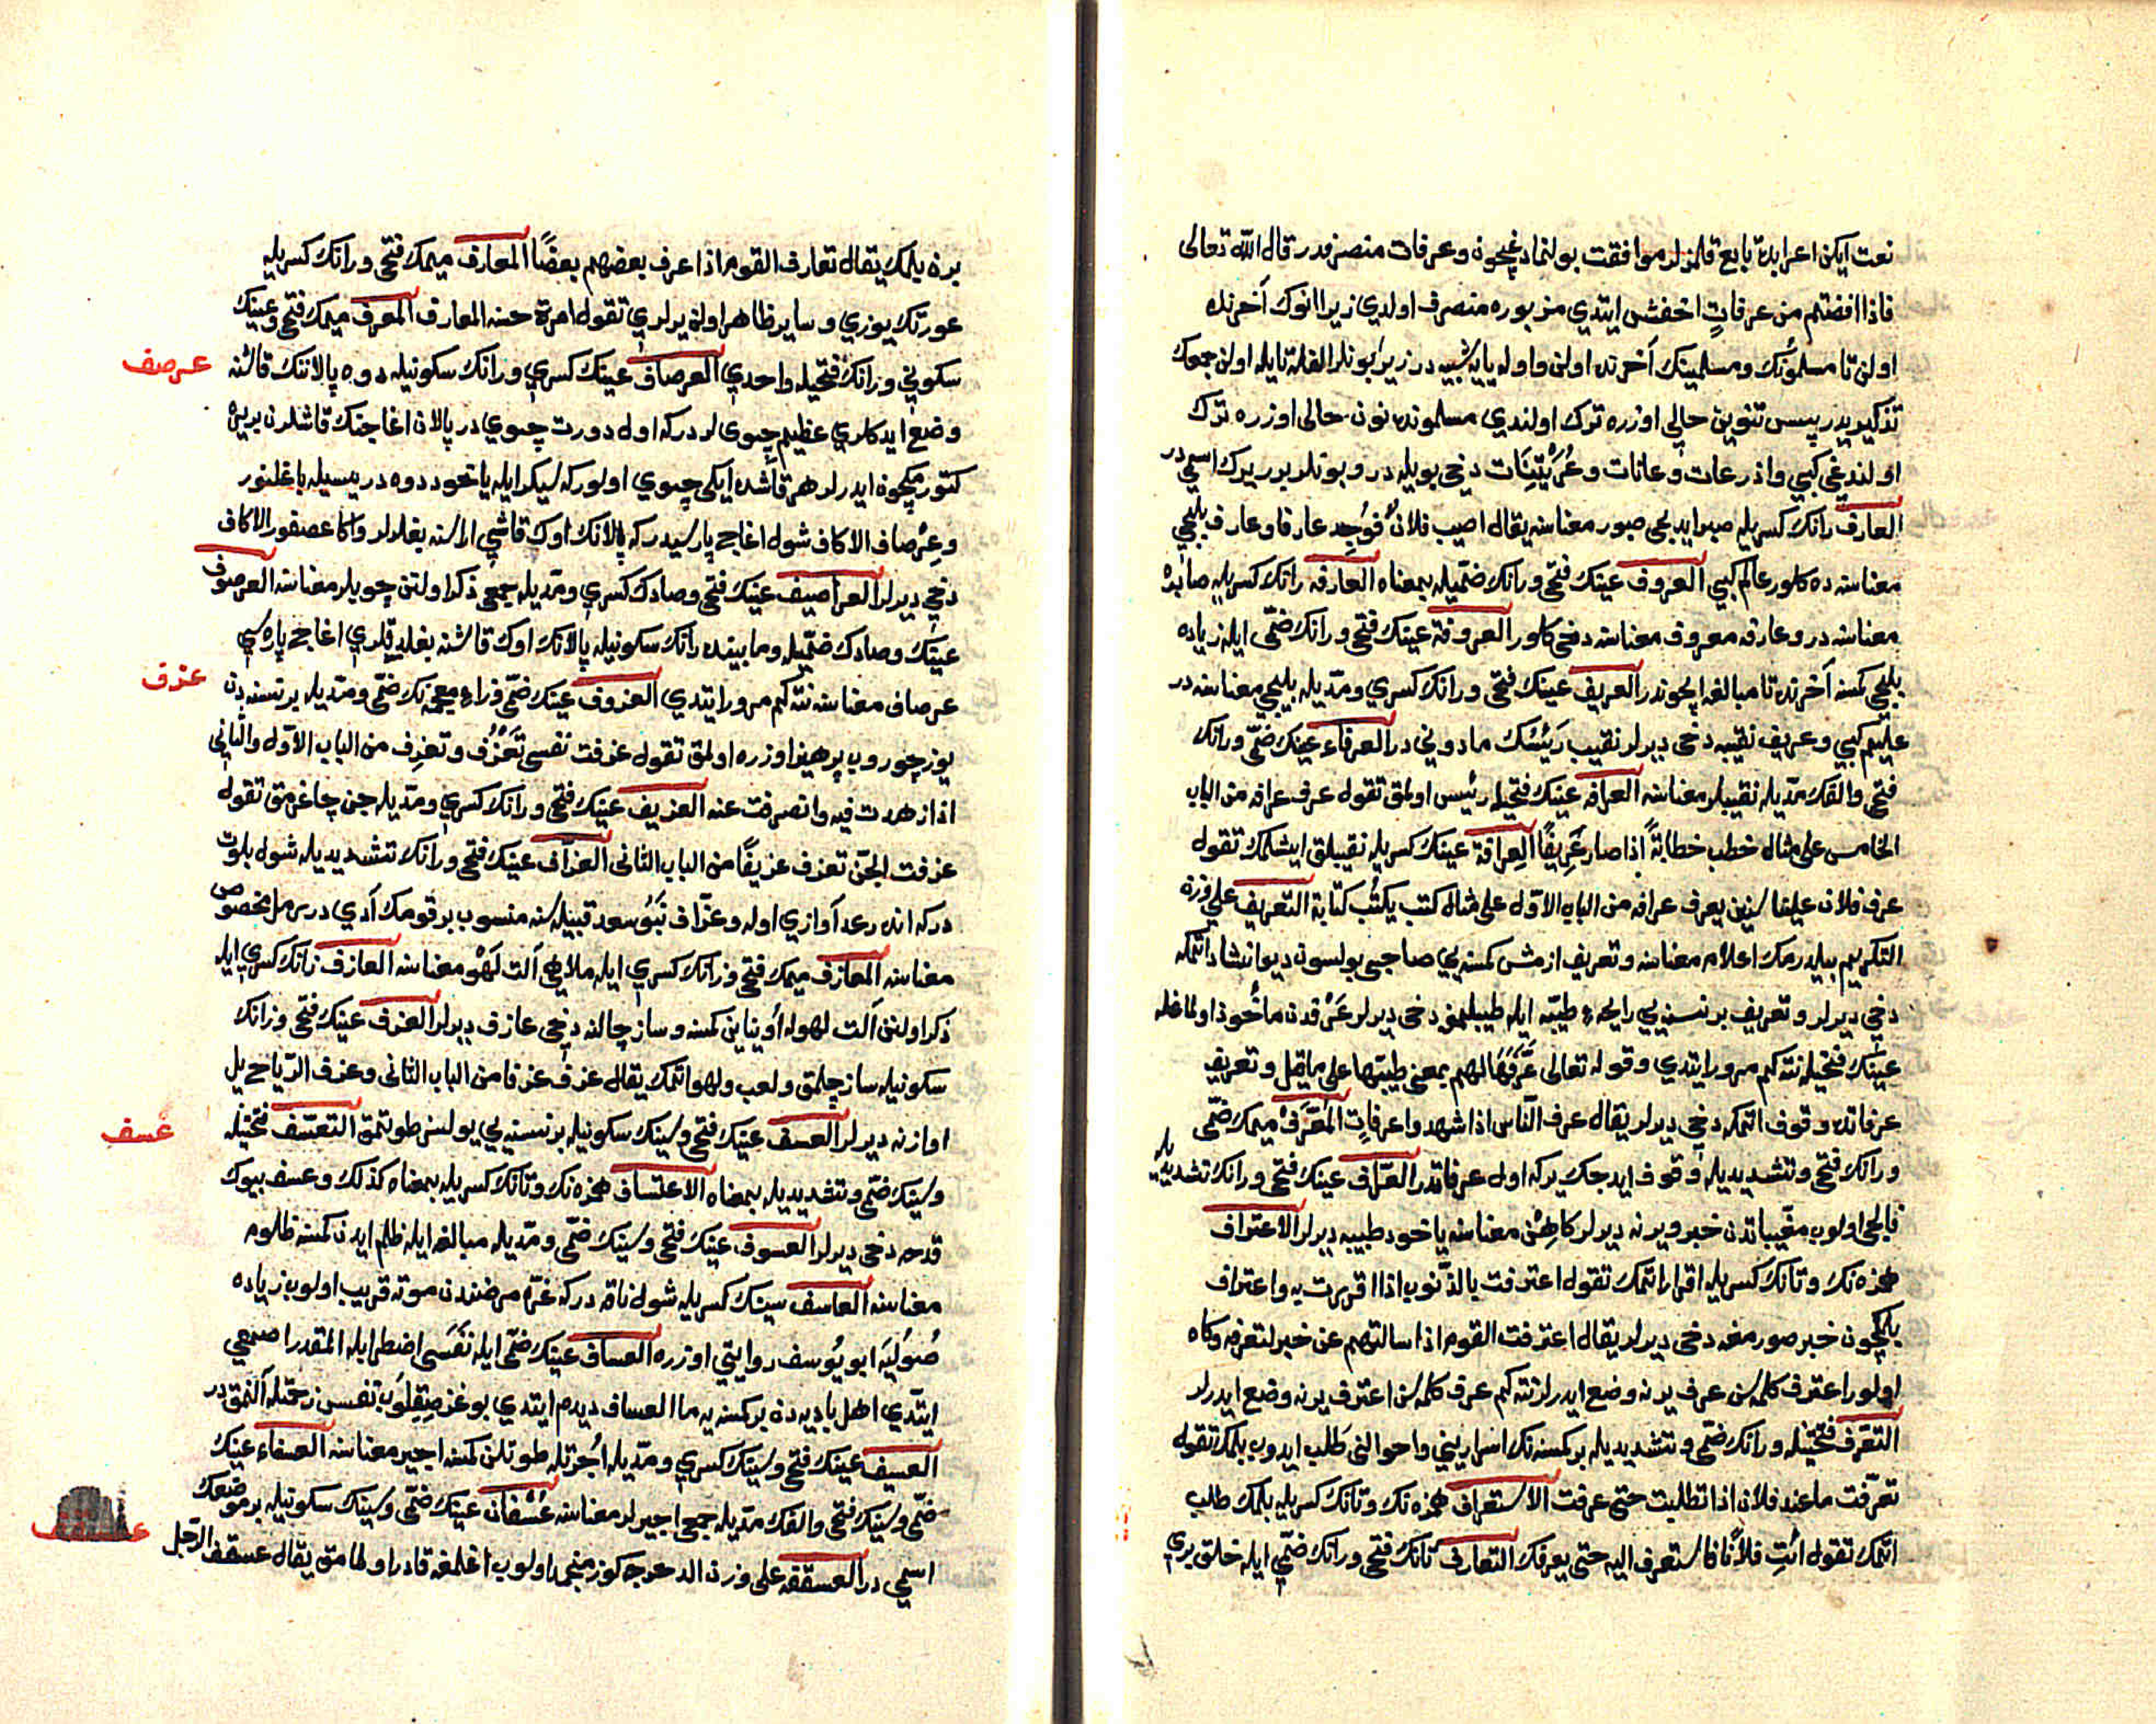 نعت ايكن اعرابده تابع قلمزلر موافقت بولنمادغيچون و عرفات منصرفدر قال الله تعالى
فاذا افضتم من عرفاتٍ اخفش ايتدي مزبوره منصرف اولدي زيرا انوك آخرنده
اولن تا مسلمونك ومسلمينك آخرنده اولن واوله يايه شبيه در زيرا بونلر الفله تايله اولن جمعك
تذكيريدر پس تنوين حالي اوزره ترك اولندي مسلمونده نون حالى اوزره ترك
اولندغي كبي واذرعات وعانات وعُرَيْتِنَات دخي بويله در وبونلر برر يرك اسمي در
العارف رانك كسريله صبر ايديجي صبور معناسنه يقال اصيب فلانٌ فوُجِد عارفا وعارف بليجي
معناسنه ده كلور عالم كبي العروف عينك فتحي ورانك ضمّيله بمعناه العارفه رانك كسريله صابره
معناسنه در وعارفه معروف معناسنه دخي كلور العروفة عينك فتحي ورانك ضمّي ايله زياده
بليجي كمسنه آخرنده تا مبالغه ايچوندر العريف عينك فتحي ورانك كسري ومدّيله بليجي معناسنه در
عليم كبي وعريف نقيبه دخي ديرلر نقيب رَئيْسك مادوني در العرفاء عينك ضمّي ورانك
فتحي والفك مدّيله نقيبلر معناسنه العرافه عينك فتحيله رئيس اولمق تقول عرف عرافه من الباب
الخامس على مثال خطب خطابةً اذا صار عَرِيفًا العِرافة عينك كسريله نقيبلق ايشلمك تقول
عرف فلان علينا سنين يعرف عرافه من الباب الاوّل على مثال كتب يكتُب كتابة التّعريف على وزنه
التكريم بيلدرمك اعلام معناسنه وتعريف ازمش كمسنه يي صاحبى بولسون ديو انشاد اتمكه
دخي ديرلر وتعريف بر نسنه يي رايحهٔ طيّبه ايله طيبلمغه دخي ديرلر عَرْفدن مأخوذ اولماغله
عينك فتحيله نته كم مرور ايتدي وقوله تعالى عَرَّفَهَا لهم بمعنى طيبتها على ما قيل وتعريف
عرفاتده وقوف اتمكه دخي ديرلر يقال عرف النّاس اذا شهدوا عرفاتِ المُعَرَّفْ ميمك ضمّي
ورانك فتحي وتشديديله وقوف ايدجك يركه اول عرفاتدر العرّاف عينك فتحي ورانك تشديديله
فالجي اولوب مغيباتدن خبر ويرنه ديرلر كاهِنْ معناسنه ياخود طبيبه ديرلر الاعتراف
همزه نك وتانك كسريله اقرار اتمك تقول اعترفت بالذّنوب اذا اقررت به واعتراف
بلكچون خبر صورمغه دخي ديرلر يقال اعترفت القوم اذا سالتهم عن خبر لتعرفه وكاه
اولور اعترف كلمه سن عرف يرنه وضع ايدرلر نته كم عرف كلمه سن اعترف يرنه وضع ايدرلر
التعّرف فتحتيله ورانك ضمّي وتشديديله بر كمسنه نك اسراريني واحوالني طلب ايدوب بلمك تقول
تعرّفت ما عند فلان اذا تطلبت حتى عرفت الاستعراف همزه نك وتانك كسريله بلمك طلب
اتمك تقول ائتِ فلانًا فاستعرف اليه حتى يعرفك التعارف تانك فتحي ورانك ضمّي ايله خلق بري
برن بلمك يقال تعارف القوم اذا عرف بعضهم بعضًا المعارف ميمك فتحي ورانك كسريله
عورتك يوزي وساير ظاهر اولن يرلري تقول امرة حسنه المعارف المعرف ميمك فتحي وعينك
سكوني ورانك فتحيله واحدي العرصاف عينك كسري ورانك سكونيله دوه پالاننك قاشنه
عرصف
وضع ايدكلري عظيم چيوى لردركه اول دورت چيوي در پالان اغاجنك قاشلرن بربره
كتورمكچون ايدرلر هر قاشده ايكي چيوي اولوركه سيكر ايله ياخود دوه دريسيله باغلنور
وعِرْصاف الاكاف شول اغاج پاره سيدركه پالانك اوك قاشي اراسنه بغلرلر واكا عصفور الاكاف
دخي ديرلر العراصيف عينك فتحي وصادك كسري ومدّيله جمعي ذكر اولنن چويلر معناسنه العرصوف
عينك وصادك ضمّيله ومابينده رانك سكونيله پالانك اوك قاشنه بغلديقلري اغاج پاره سي
عرصاف معناسنه نته كم مرور ايتدي العزوف عينك ضمّي وزاء معجمه نك ضمّي ومدّيله بر نسنه دن
عزف
يوز چوروب پرهيز اوزره اولمق تقول عزفت نفسي تَعْزُف وتعزِف من الباب الاوّل والثّاني
اذا زهدت فيه وانصرفت عنه العزيف عينك فتحي ورانك كسري ومدّيله جن چاغرمق تقول
عزفت الجنّ تعزف عزيفًا من الباب الثانى العزّاف عينك فتحي ورانك تشديديله شول بلوت
دركه انده رعد آوازي اوله وعزّاف بَنُو سعد قبيله سنه منسوب بر قومك آدي در رمل مخصوص
معناسنه المعازف ميمك فتحي وزانك كسري ايله ملاهي آلت لَهْو معناسنه العازف زانك كسري ايله
ذكر اولنن آلت لهوله اُويناين كمسنه وساز چالنه دخي عازف ديرلر العزف عينك فتحي وزانك
سكونيله ساز چلمق ولعب ولهو اتمك يقال عزف عزفا من الباب الثانى وعزف الرّياح يل
اوازنه ديرلر العسف عينك فتحي وسينك سكونيله بر نسنه يي يولسز طوتمق التعسّف فتحتيله
عسف
وسينك ضمّي وتشديديله بمعناه الاعتساف همزه نك وتانك كسريله بمعناه كذلك وعسف بيوك
قدحه دخي ديرلر العسوف عينك فتحي وسينك ضمّي ومدّيله مبالغه ايله ظلم ايدن كمسنه ظلوم
معناسنه العاسف سينك كسريله شول ناقه دركه غدّه مرضندن موته قريب اولوب زياده
صُولَيَه ابو يُوسف روايتي اوزره العساف عينك ضمّي ايله نَفَسَي اضطرابله المقدر اصمعي
ايتّدي اهل باديه دن بر كمسنه يه ما العساف ديدم ايتدي بوغز صِقِلُوب نفسن زحمتله آلمق در
العسيف عينك فتحي وسينك كسري ومدّيله اُجرتله طوتلن كمسنه اجير معناسنه العسفاء عينك
ضمّي وسينك فتحي والفك مدّيله جمعي اجيرلر معناسنه عُسْفان عينك ضمّي وسينك سكونيله بر موضعك
اسمي در العسقفه على وزن الدحرجه كوز منجمد اولوب اغلمغه قادر اولمامق يقال عسقف الرّجل
عسقف